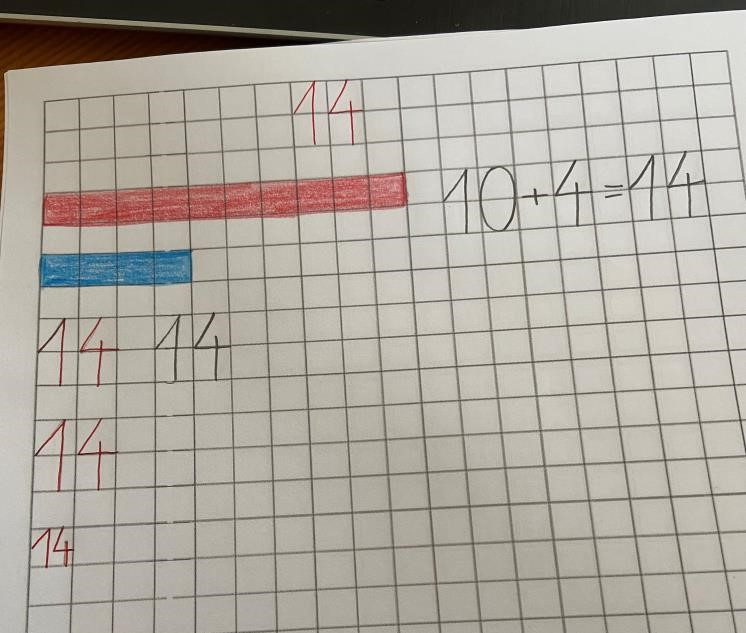 14
10+4=14
14 14
14
14